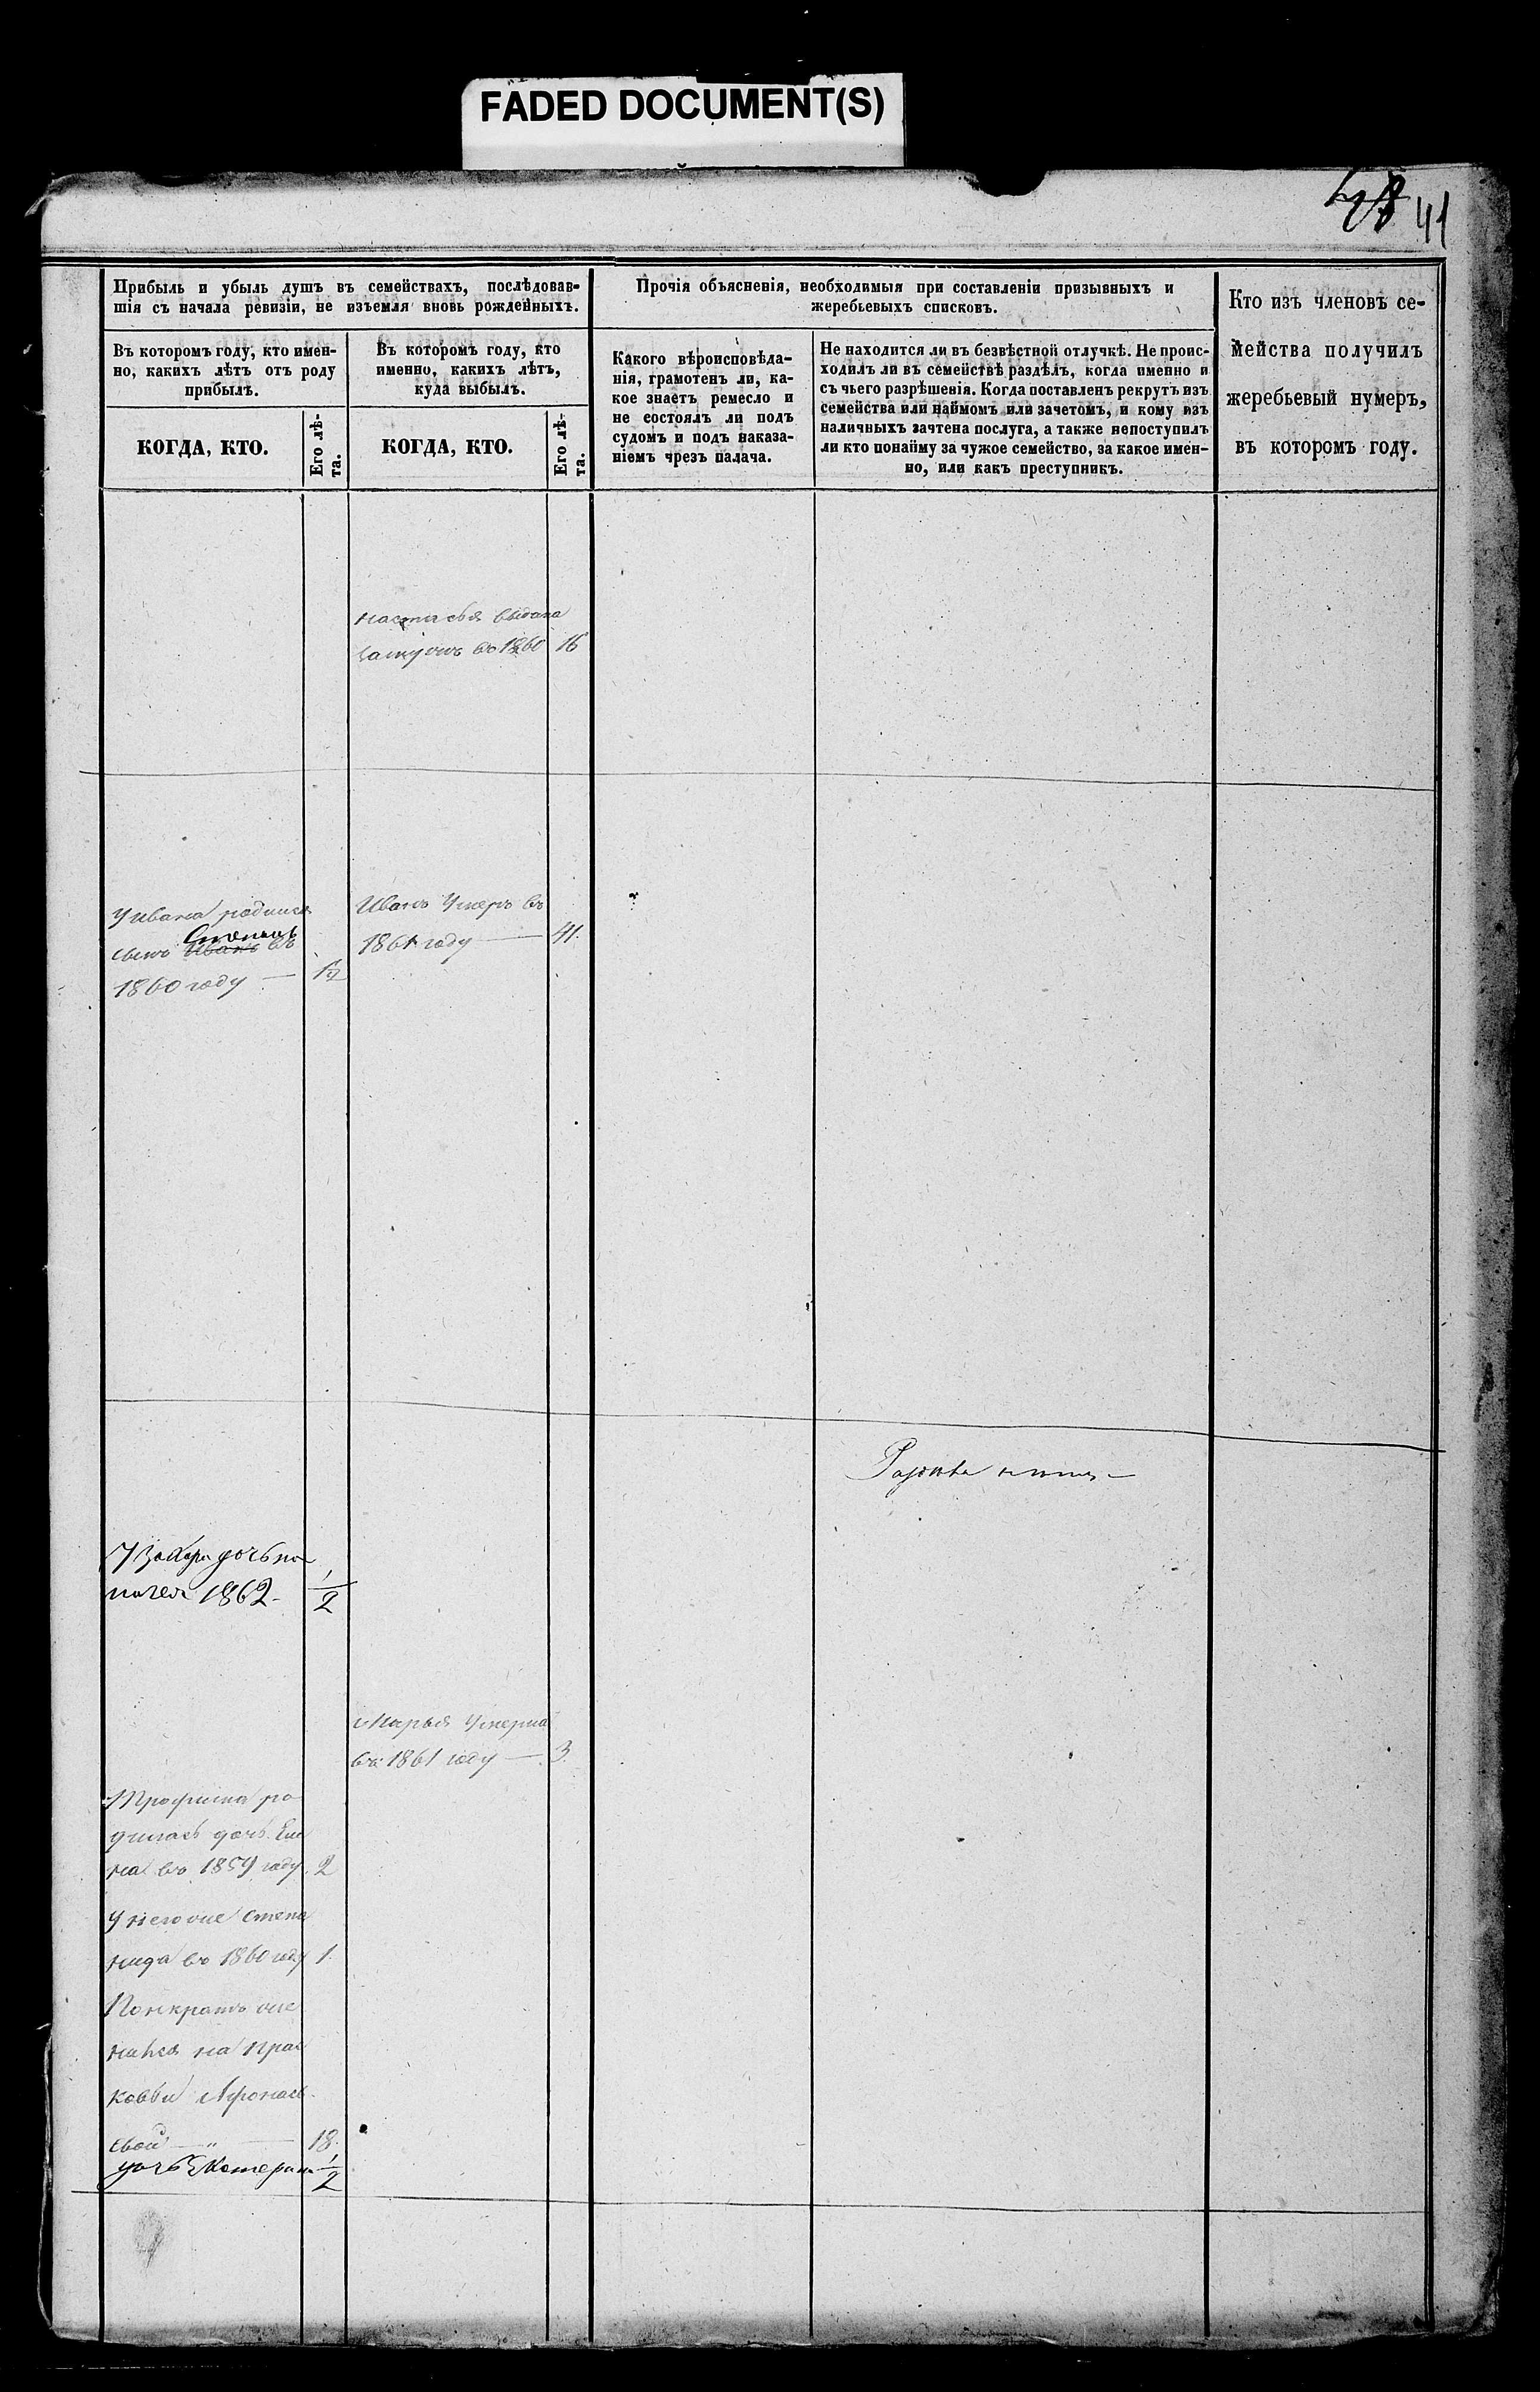 FADED DOCUMENT(S)
41
Прибыль и убыль душъ въ семействахъ, послѣдовав-
шія съ начала ревизіи, не изъемля вновь рожденныхъ.
Прочія объясненія, необходимыя при составленіи призывныхъ и
жеребьевыхъ списковъ.
Кто изъ членовъ се-
мейства получилъ
жеребьевый нумеръ,
въ которомъ году.
Въ которомъ году, кто имен-
но, какихъ лѣтъ отъ роду
прибылъ.
Въ которомъ году, кто
именно, какихъ лѣтъ,
куда выбылъ.
Какого вѣроисповѣда-
нія, грамотенъ ли, ка-
кое знаетъ ремесло и
не состоялъ ли подъ
судомъ и подъ наказа-
ніемъ чрезъ палача.
Не находится ли въ безвѣстной отлучкѣ. Не проис-
ходилъ ли въ семействѣ раздѣлъ, когда именно и
съ чьего разрѣшенія. Когда поставленъ рекрутъ изъ
семейства или наймомъ или зачетомъ, и кому изъ
наличныхъ зачтена послуга, а также непоступилъ
ли кто понайму за чужое семейство, за какое имен-
но, или какъ преступникъ.
КОГДА, КТО.
Его лѣ-
та.
КОГДА, КТО.
Его лѣ-
та.
Настасья выдана
замужъ въ 1860 16
У Ивана родился
Степанъ
сынъ Иванъ въ
1860 году — 1/2
Иванъ Умеръ въ
1861 году — 41.
У Захара дочь
1862 - 1/2
Марья Умерла
въ 1861 году — 3.
Трофима ро
дилась дочь Еле
на въ 1859 году 2
У него же Степа
нида въ 1860 году 1.
Понкратъ же
нился на Прас
ковьи Афонась-
евой — " — 18.
дочь Катерина 1/2